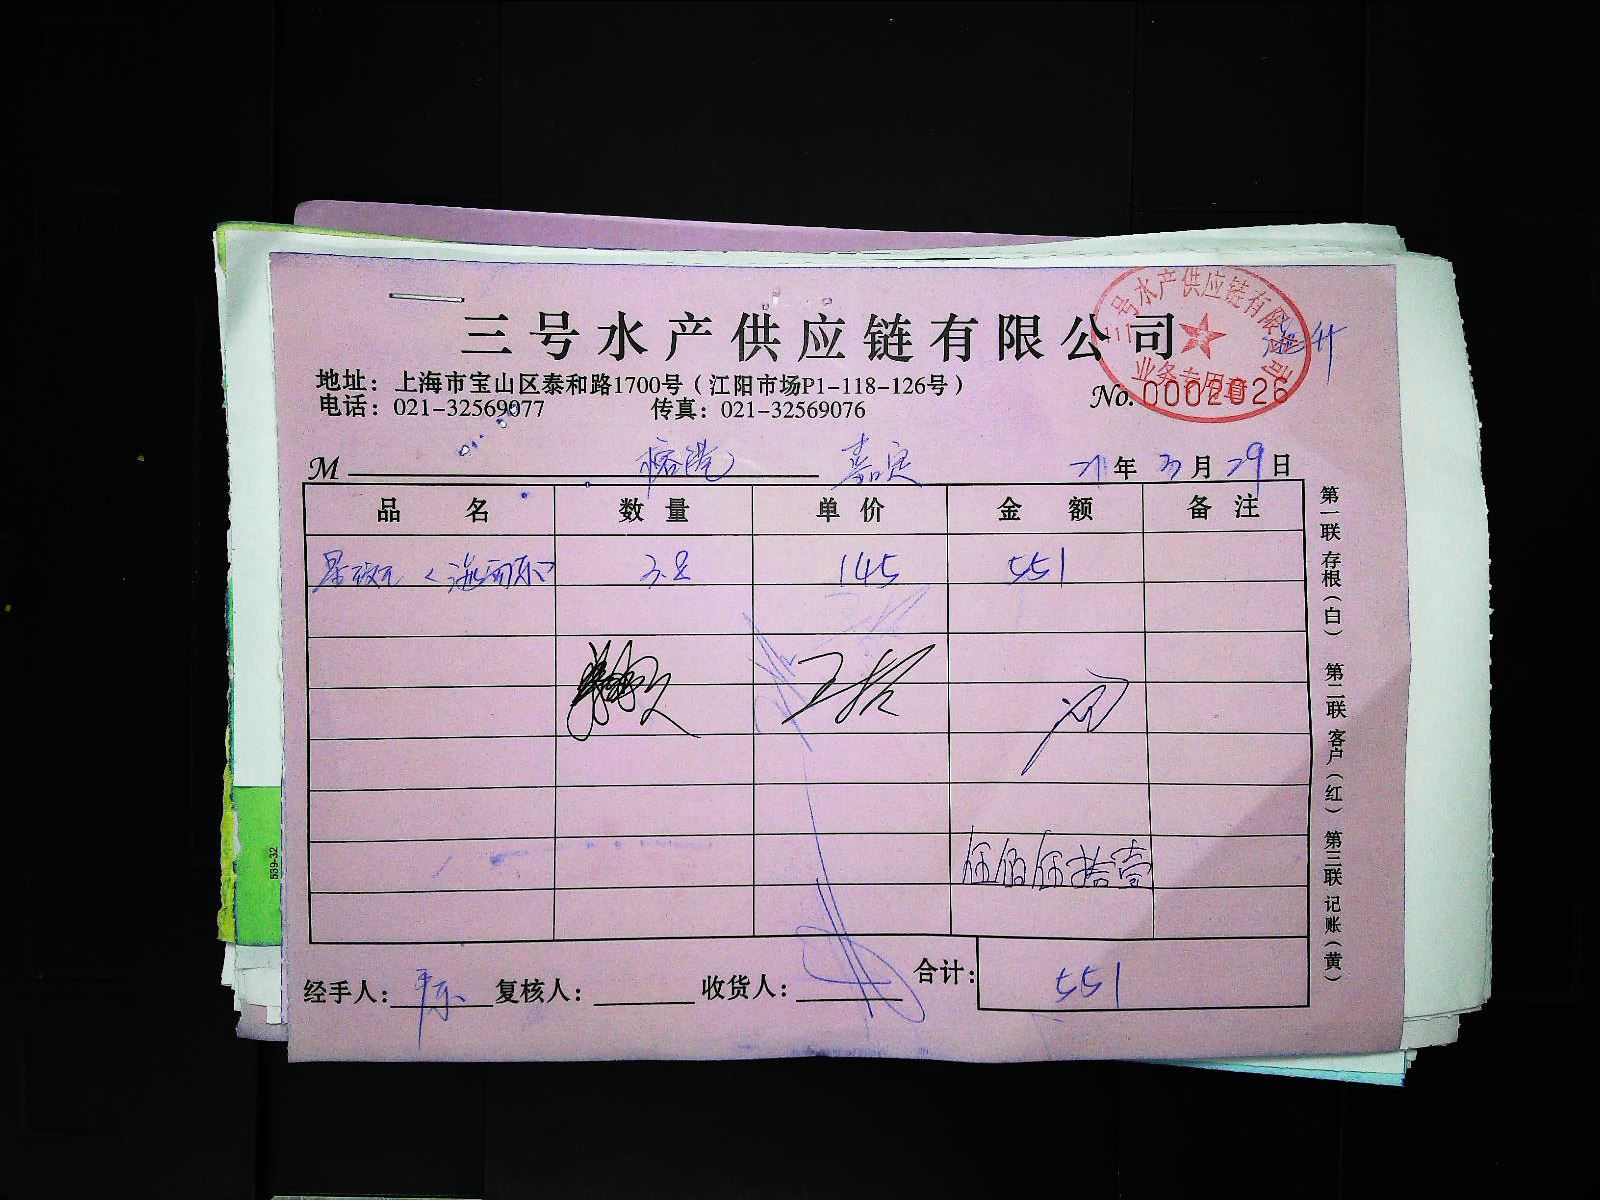 三号水产供应链有限公司
三号水产供应链有限公司
业务专用章
地址：上海市宝山区泰和路1700号（江阳市场P1-118-126号）
电话：021-32569077 传真：021-32569076
No. 0002026
M 榕港 嘉定 21年 3月 29日
品名 数量 单价 金额 备注
3.8 145 551
伍佰伍拾壹
经手人： 复核人： 收货人： 合计： 551
第一联 存根（白） 第二联 客户（红） 第三联 记账（黄）
539-32